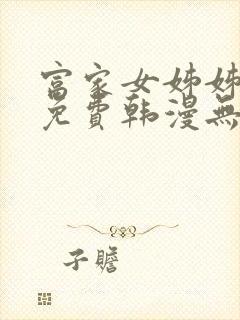 富家女姊姊
免費韩漫無
子瞻